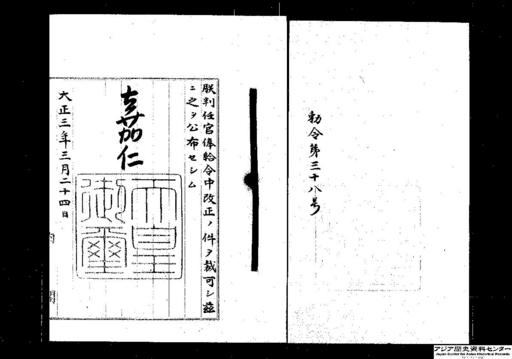 勅令第三十八号
朕判任官俸給令中改正ノ件ヲ裁可シ茲
ニ之ヲ公布セシム
嘉仁
天皇
御璽
大正三年三月二十四日
内閣
アジア歴史資料センター
Japan Center for Asian Historical Records